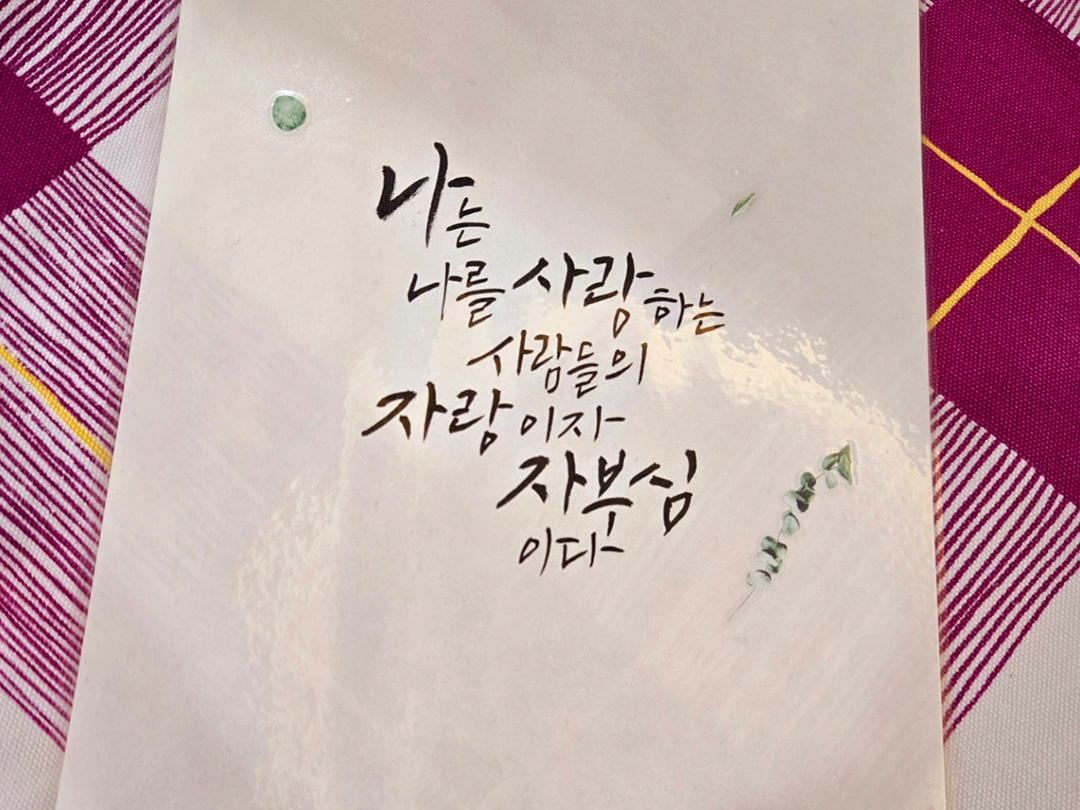 나는
나를 사랑하는
사람들의
자랑이자
자부심
이다